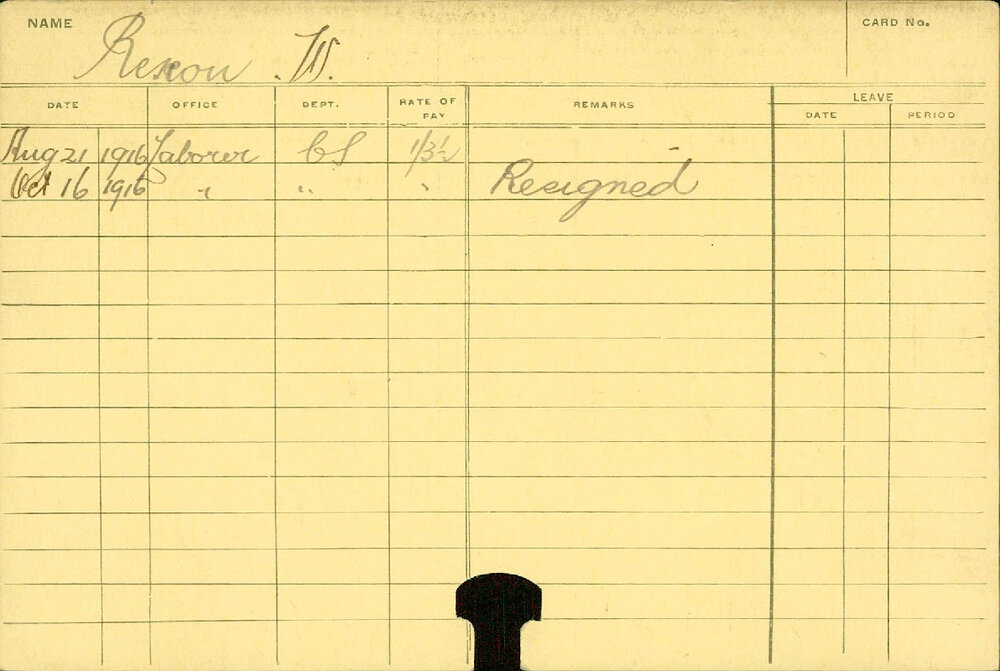 NAME CARD No.
Rexon . W.
DATE OFFICE DEPT. RATE OF PAY REMARKS LEAVE
DATE PERIOD
Aug 21 1916 Laborer CS 1/3½
Oct 16 1916 " " " Resigned